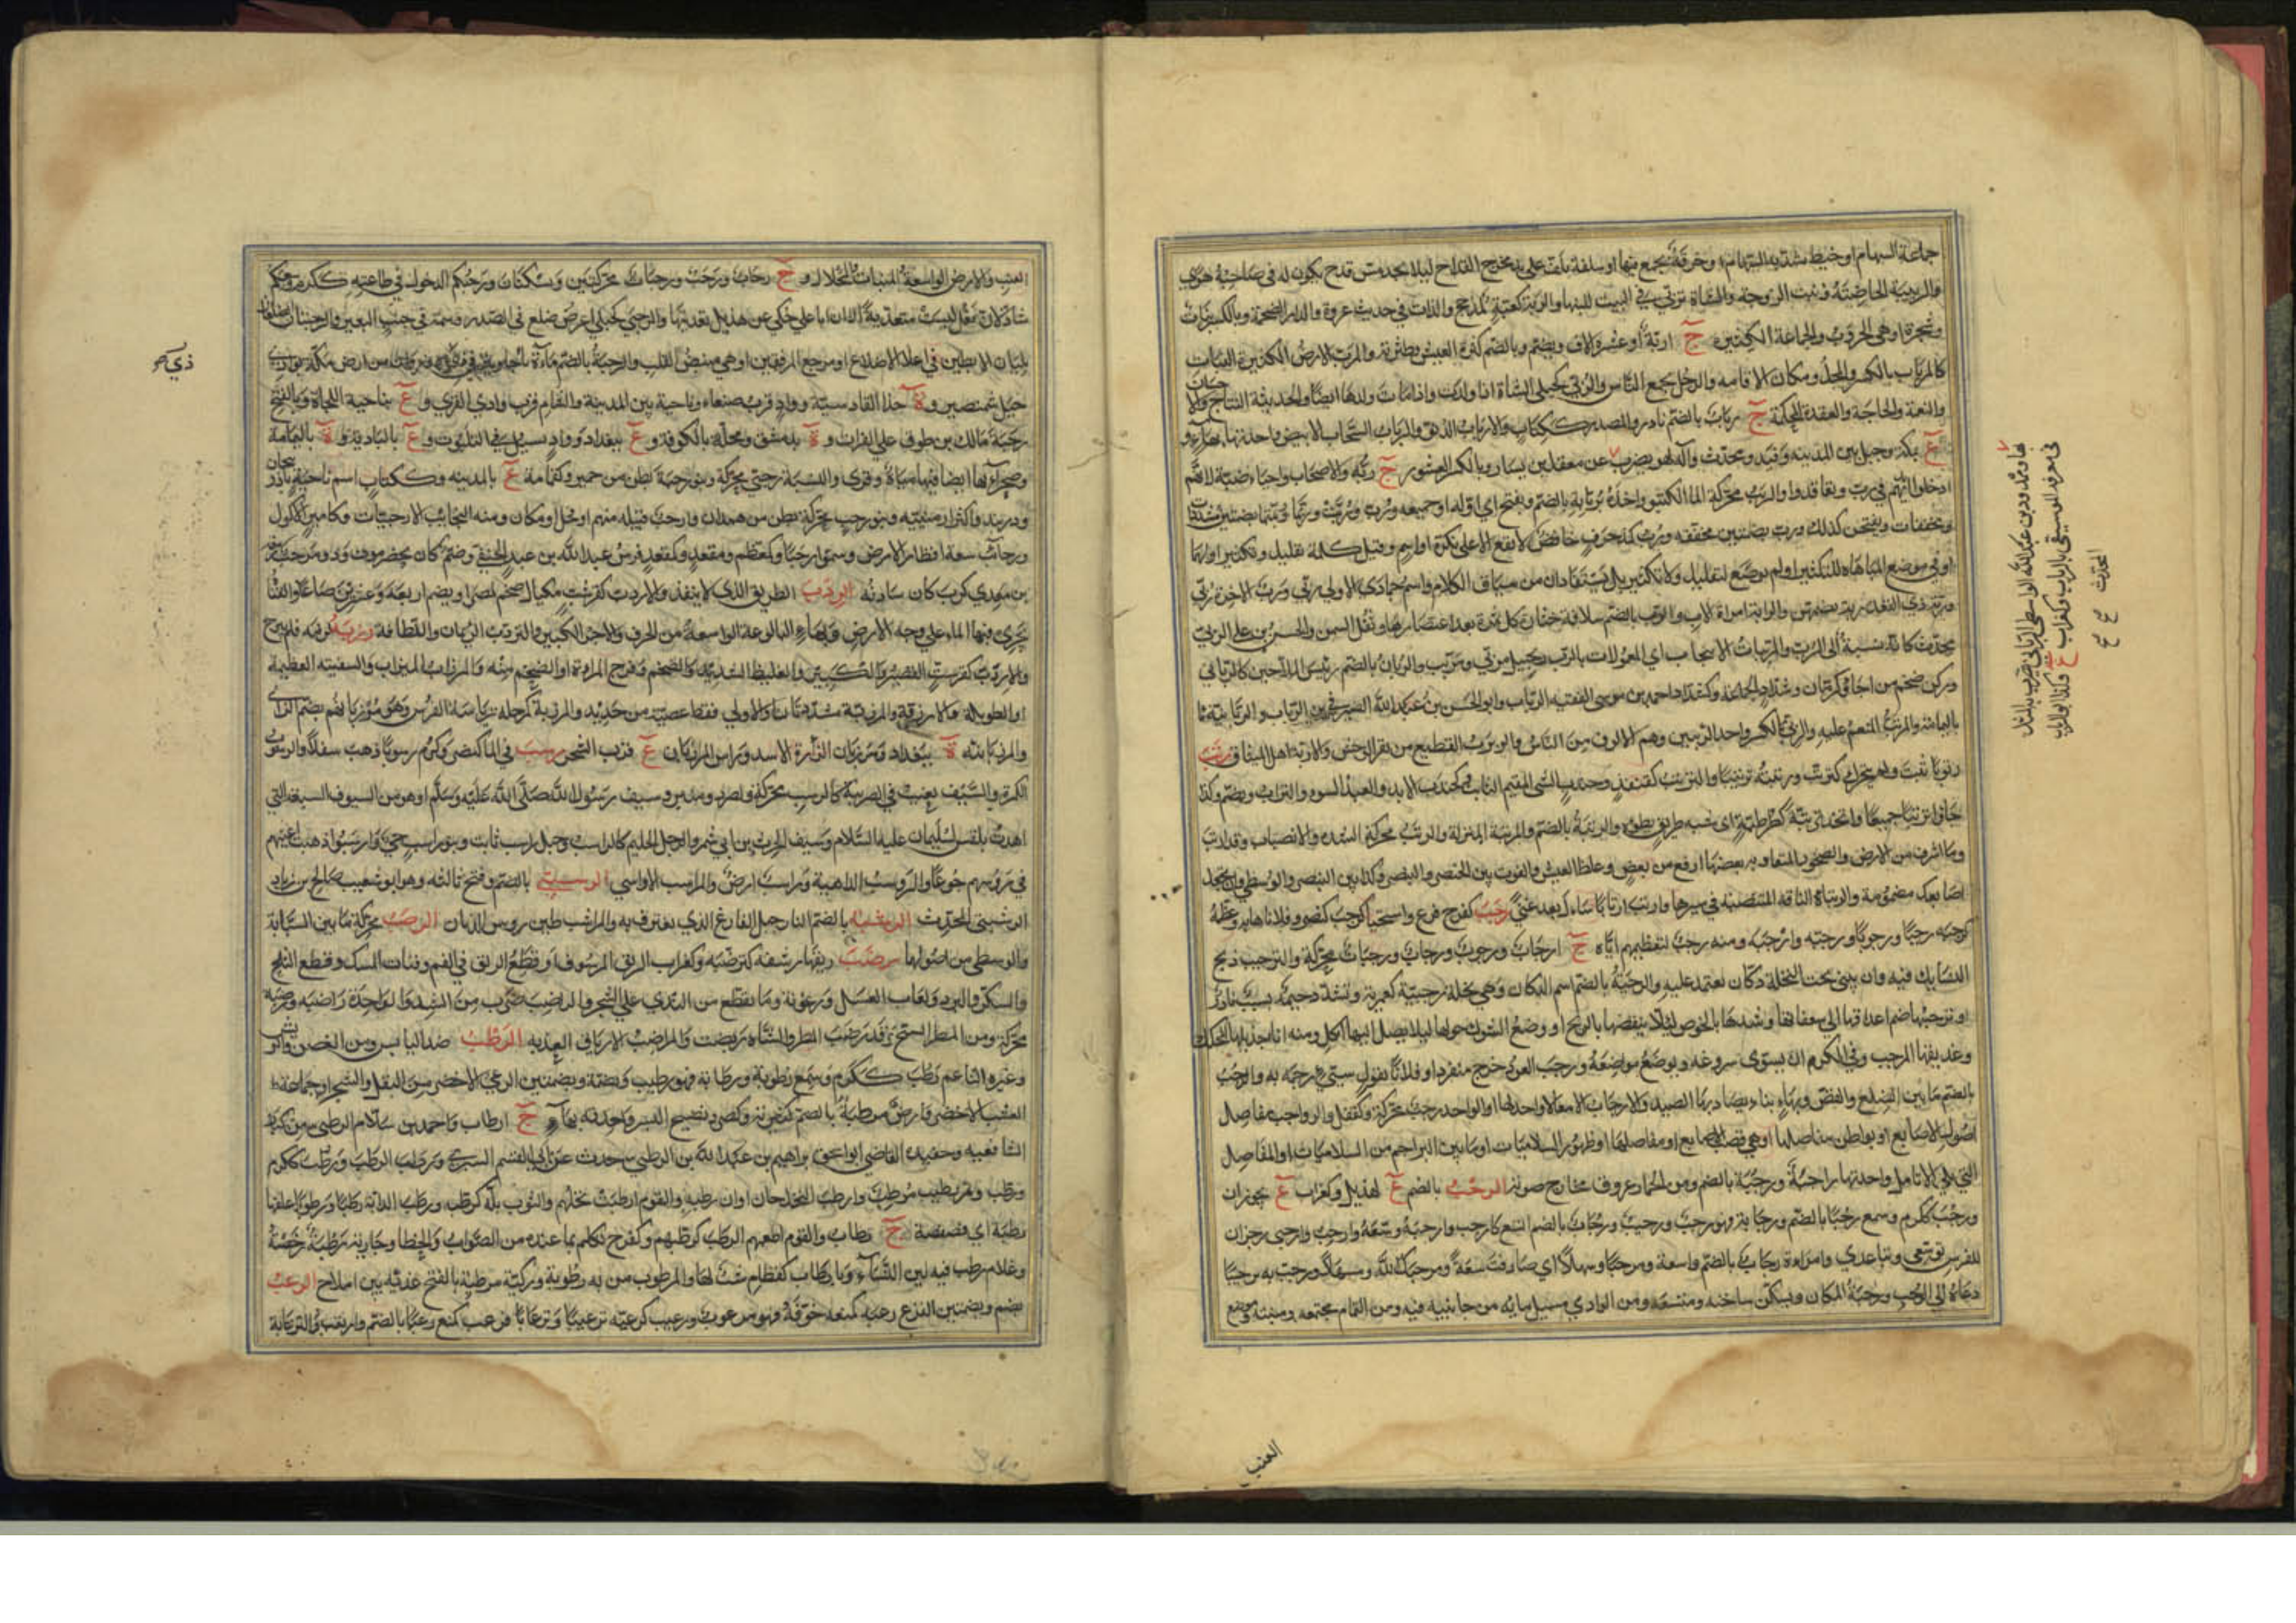 جماعة السهام او خيط تشد به السهام او خرقة تجمع فيها او سلفة يلف على يد مخرج القداح ليلا يجد مس قدح يكون له في صاحبه هوى
والربيبة الحاضنة وبنت الزوجة والشاة تربى في البيت للبنها والربة كعبة لمذحج واللات في حديث عروة والدار الضخمة وبالكسر نبات
وشجرة او هي الخروب والجماعة الكثيرة ج اربة او عشرة الاف ويضم وبالضم كثرة العيش والمرب الارض الكثيرة النبات
كالمرباب بالكسر والمحل ومكان الاقامه والرجل يجمع الناس والربى كحبلى الشاة اذا ولدت واذا مات ولدها ايضا والحديثة النتاج والا حسان
والنعمة والحاجة والعقدة المحكمة ج رباب بالضم نادر والمصدر ككتاب والارباب الدنو والرباب السحاب الابيض واحدته بهاء و
ع بمكة وجبل بين المدينه وفيد ومحدث وآلة لهو يضرب بها عن معقل بن يسار وبالكسر العشور ج ربه والاصحاب واحياء ضبة لانهم
ادخلوا ايديهم في رب وتعاقدوا والربب محركة الما الكثير واخذه بربانه بالضم ويفتح اي اوله او جميعه
ومخففات وبفتحهن كذلك ورب بضمتين مخففه ورب كمذ حرف خافض لا يقع الا على نكرة او اسم وقيل كلمة تقليل وتكثير او لهما
او في موضع المباهاة للتكثير او لم يوضع لتقليل ولا تكثير بل يستفادان من سياق الكلام واسم جمادى الاولى ربى ورب والاخرة ربى
وربة وذي القعدة ربة بضمهن والرابة امراة الاب والرب بالضم سلافة خثارة كل ثمرة بعد اعتصارها وثفل السمن والحسن بن علي الربي
محدث كانه نسبة الى الرب والمربات الانبجات اي المعمولات بالرب وزنجبيل مربى ومربب والربان بالضم رئيس الملاحين كالرباني
وركن ضخم من اجا وكرمان وشداد الجماعة وكشداد احمد بن موسى الفقيه الرباب وابو الحسن بن عبد الله الصيرفي بن الرباب والربابية ما
باليمامة والمربب المنعم عليه والربي بالكسر واحد الربيين وهم الالوف من الناس والربرب القطيع من بقر الوحش والاربة اهل الميثاق رتب
رتوبا ثبت ولم يتحرك كترتب ورتبته ترتيبا والترتب كقنفذ وجندب الشي المقيم الثابت وكجندب الابد والعبد السوء والتراب ويضم وكذا
جاؤا ترتبا جميعا واتخذ ترتبة كطرطبة اي شبه طريق يطؤه والرتبة بالضم والمرتبة المنزلة والرتب محركة الشدة والانصباب وقد ارتب
وما اشرف من الارض والصخور المتقاربة بعضها ارفع من بعض وغلظ العيش والفوت بين الخنصر والبنصر وكذا بين البنصر والوسطى وان تجعل
اصابعك مضمومة والرتباء الناقة المنتصبة في سيرها وارتب ارتابا سال بعد غنى رجب كفرح فزع واستحيا كرجب كنصر وفلانا هابه وعظمه
كرجبه رجبا ورجوبا ورجبه وارجبه ومنه رجب لتعظيمهم اياه ج ارجاب ورجوب ورجاب ورجبات محركة والترجيب ذبح
النسايك فيه وان يبنى تحت النخلة دكان تعتمد عليه والرجبة بالضم اسم الدكان وهي نخلة رجبية كعمرية وتشدد جيمه نسب نادر
او ترجيبها ضم اعذاقها الى سعفاتها وشدها بالخوص لئلا ينفضها الريح او وضع الشوك حولها ليلا يصل اليها آكل ومنه انا جذيلها المحكك
وعذيقها المرجب وفي الكرم ان يسوى سروغه ويوضع مواضعه ورجب العود خرج منفردا وفلانا بقول سيئ رجمه به والرجب
بالضم ما بين الضلع والقص وبهاء بناء يصاد بها الصيد والارجاب الامعا لا واحد لها او الواحد رجب محركة وكقفل والرواجب مفاصل
اصول الاصابع او بواطن مفاصلها او هي قصب الاصابع او مفاصلها او ظهور السلاميات او ما بين البراجم من السلاميات او المفاصل
التي تلي الانامل واحدتها راجبة ورجبة بالضم ومن الحمار عروق مخارج صوته الرحب بالضم ع لهذيل وكغراب ع بحوران
ورحب ككرم وسمع رحبا بالضم ورحابة فهو رحب ورحيب ورحاب بالضم اتسع كارحب وارحبه وسعه وارحب وارحبي زجران
للفرس توسعي وتباعدي وامراة رحاب بالضم واسعة ومرحبا وسهلا اي صادفت سعة ومرحبك الله ومسهلك ورحب به ترحيبا
دعاه الى الرحب ورحبة المكان وتسكن ساحته ومتسعه ومن الوادي مسيل مايه من جانبيه فيه ومن الثمام مجتمعه ومنبته وموضع
العنب
في معرفة الموسيقى بالرباب وكغراب ع وكذا ابو الرباب
المحدث
صح صح
العنب والارض الواسعة المنبات المحلال و ج رحاب ورحب ورحبات محركتين وتسكنان ورحبكم الدخول في طاعته ككرم وسعكم
شاذ لان فعل ليست متعدية الا ان ابا علي حكى عن هذيل تعديتها والرحبى كحبلى اعرض ضلع في الصدر وسمة في جنب البعير والرحبيان الضلعان
تليان الابطين في اعلا الاضلاع او مرجع المرفقين او هي منبض القلب والرحبة بالضم ماءة باجاو
جبل شمنصير و ة حذا القادسية وواد قرب صنعاء وناحية بين المدينة والشام قرب وادي القرى و ع بناحية اللجاة وبالفتح
رحبة مالك بن طوق على الفرات و ة بدمشق ومحلة بالكوفة و ع ببغداد وواد يسيل في الثلبوت و ع بالبادية و ة باليمامة
وصحراء بها ايضا فيها مياه وقرى والنسبة رحبي محركة وبنو رحبة بطن من حمير وكثمامة ع بالمدينه وككتاب اسم ناحية باذربيجان
ودربند واكثر ارمينيه وبنو رحب محركة بطن من همدان وارحب قبيلة منهم او فحل او مكان ومنه النجائب الارحبيات وكامير الاكول
ورحائب سعة اقطار الارض وسموا رحبا وكمعظم ومقعد وكمقعد فرس عبد الله بن عبد الحنفي وصنم كان بحضرموت وذو مرحب ربيعة
بن معدي كرب كان سادنه الردب الطريق الذي لا ينفذ والاردب كقرشب مكيال ضخم لمصر او يضم اربعة وعشرين صاعا والقناة
تجري فيها الماء على وجه الارض وبهاء البالوعة الواسعة من الخزف والاجر الكبير والتردب الريمان واللطافة رزبه لزمه فلم يبرح
والارزب كقرشب القصير والكبير والغليظ الشديد والضخم وفرج المراة او الضخم منه والمرزاب الميزاب والسفينة العظيمة
او الطويلة والارزبة والمرزبة مشددتان او الاولى فقط عصية من حديد والمرزبة كمرحلة رياسة الفرس وهو مرزبانهم بضم الزاي
والمرزبانية ة ببغداد ومرزبان الزارة الاسد وراس المرزبان ع قرب الشحر رسب في الما كنصر وكرم رسوبا ذهب سفلا والرسوب
الكمرة والسيف يغيب في الضريبة كالرسب محركة وصرد ومنبر وسيف رسول الله صلى الله عليه وسلم او هو من السيوف السبعة التي
اهدت بلقيس لسليمان عليه السلام وسيف الحارث بن ابي شمر والرجل الحليم كالراسب وجبل راسب ثابت وبنو راسب حي وارسبوا ذهبت اعينهم
في رؤسهم جوعا والروسب الداهية وراسب ارض والمراسب الاواسي الرسبي بالضم وفتح ثالثه وهو ابو شعيب صالح بن زياد
الرشبي المحدث الرشبة بالضم النارجيل الفارغ الذي يغترف به والمراشب طين رؤس الدنان الرصب محركة ما بين السبابة
والوسطى من اصولها رضب ريقها رشفه كترضبه وكغراب الريق المرشوف او قطع الريق في الفم وفتات المسك وقطع الثلج
والسكر والبرد ولعاب العسل ورغوته وما تقطع من الندى على الشجر والراضب ضرب من السدر الواحدة راضبة ورضبة
محركة ومن المطر السح وقد رضب المطر والشاة ربضت والمراضب الارياق العذبه الرطب ضد اليابس ومن الغصن والريش
وغيره الناعم رطب ككرم وسمع رطوبة ورطابة فهو رطيب وبضمة وبضمتين الرعي الاخضر من البقل والشجر او جماعة
العشب الاخضر وارض مرطبة بالضم كثيرته وكصرد نضيج البسر واحدته بهاء ج ارطاب واحمد بن سلام الرطبي من كبار
الشافعيه وحفيده القاضي ابو اسحق ابراهيم بن عبد الله بن الرطبي حدث عن ابي القسم البسري ورطب الرطب ورطب ككرم
ورطب وتمر رطيب مرطب وارطب النخل حان اوان رطبه والقوم ارطبت نخلهم والثوب بله كرطبه ورطب الدابة رطبا ورطوبا علفها
رطبة اي فصفصة ج رطاب والقوم اطعمهم الرطب كرطبهم وكفرح تكلم بما عنده من الصواب والخطا وجارية رطبة رخصة
وغلام رطب فيه لين النساء ويا رطاب كقطام شتم لها والمرطوب من به رطوبة وركية مرطبة بالفتح عذبة بين املاح الرعب
بضم وبضمتين الفزع رعبه كمنعه خوفه فهو مرعوب ورعيب كرعبه ترعيبا وترعابا فرعب كمنع رعبا بالضم وارتعب والترعابة